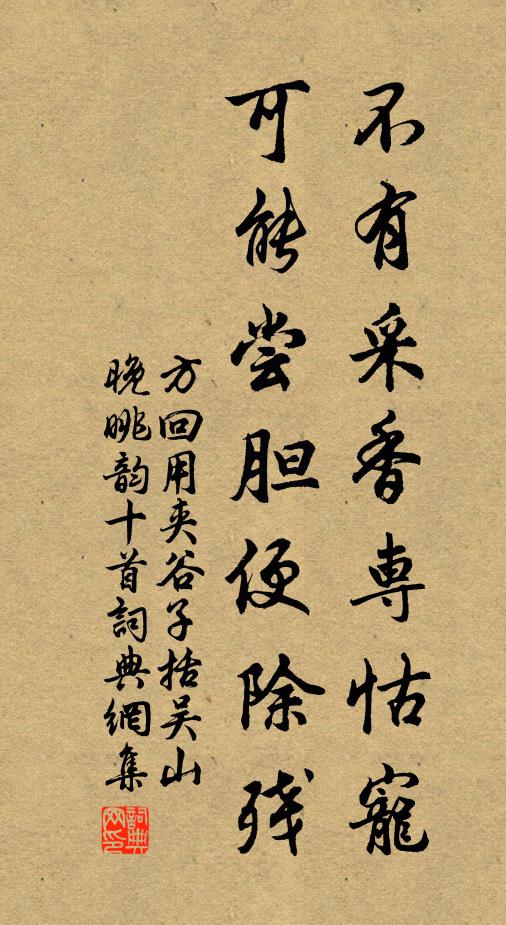 不有采香専怙寵
可能尝胆便除残
方回用夹谷子括吴山
晚眺韵十首詞典網集
詞典网印